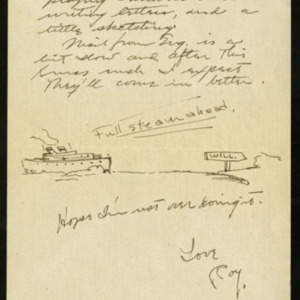 writing letters, and a
little sketching
Mail from Eng. is a
bit slow and after this
Xmas rush I expect
They'll come in better.
Full steam ahead.
WILL.
Hope I'm not over doing it.
Love
Roy.